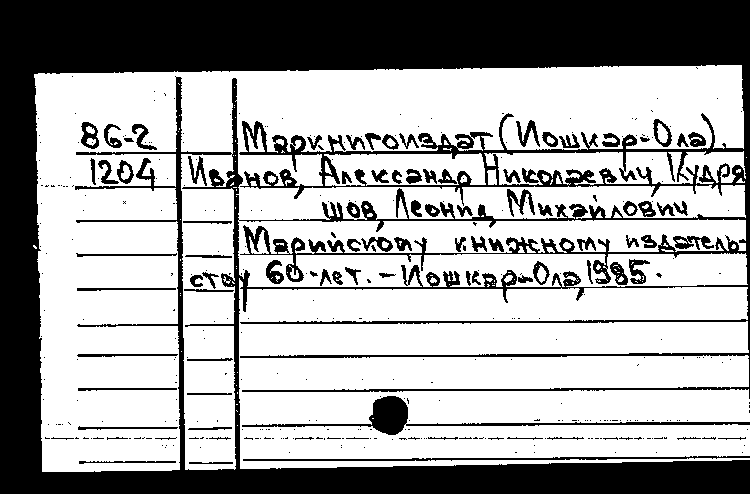 86-2 Маркнигоиздат (Йошкар-Ола).
1204 Иванов, Александр Николаевич, Кудря
шов, Леонид Михайлович.
Марийскому книжному издатель-
ству 60-лет. - Йошкар-Ола, 1985.